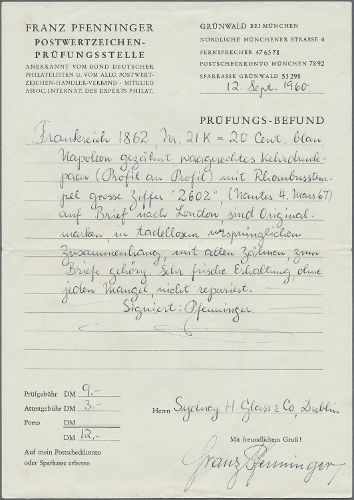 FRANZ PFENNINGER
POSTWERTZEICHEN-
PRÜFUNGSSTELLE
ANERKANNT VOM BUND DEUTSCHER
PHILATELISTEN U. VOM ALLG. POSTWERT-
ZEICHEN-HÄNDLER-VERBAND · MITGLIED
ASSOC. INTERNAT. DES EXPERTS PHILAT.
GRÜNWALD BEI MÜNCHEN
NÖRDLICHE MÜNCHENER STRASSE 4
FERNSPRECHER 476378
POSTSCHECKKONTO MÜNCHEN 7892
SPARKASSE GRÜNWALD 53 298
12. Sept. 1960.
PRÜFUNGS-BEFUND
Frankreich 1862, Nr. 21K = 20 Cent, blau,
Napoleon gezähnt waagrechtes Kehrdruck-
paar (Profil an Profil) mit Rhombusstem-
pel grosse Ziffer "2602", (Nantes 4. Mars 67)
auf Brief nach London sind Original-
marken, in tadellosem ursprünglichen
Zusammenhang, mit allen Zähnen, zum
Briefe gehörig. Sehr frische Erhaltung, ohne
jeden Mangel, nicht repariert.
Signiert: Pfenninger.
Prüfgebühr DM 9.-
Attestgebühr DM 3.-
Porto DM
DM 12.-
Auf mein Postscheckkonto
oder Sparkasse erbeten
Herrn Sydney H. Glass & Co, Dublin
Mit freundlichem Gruß!
Franz Pfenninger